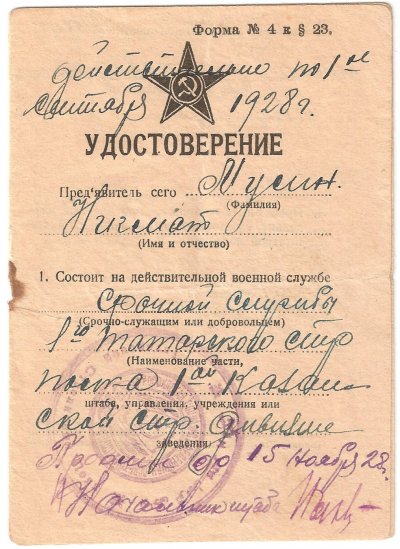 Форма № 4 к § 23.
действительно по 1ое
сентября 1928 г.
УДОСТОВЕРЕНИЕ
Пред'явитель сего Мусин.
(Фамилия)
Нигмат
(Имя и отчество)
1. Состоит на действительной военной службе
Срочной службы
(Срочно-служащим или добровольцем)
1го Татарского стр
(Наименование части,
полка 1ой Казан
штаба, управления, учреждения или
ской стр дивизии
заведения)
до 15 Ноября 28г.
Начальник штаба